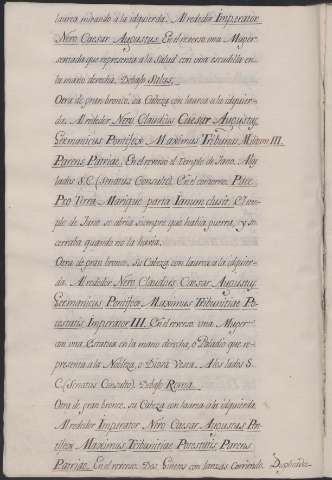 laurea mirando a la idquierda. Al rededor Imperator
Nero Caesar Augustus. En el reverso una Muger
sentada que representa a la Salud con una escudilla en
la mano derecha. Debajo Salus.
Otra de gran bronce, su Cabeza con laurea a la idquier-
da. Al rededor Nero Claudius Caesar Augustus
Germanicus Pontifex Maximus Tribunus Militum III.
Parens Patriae. En el reverso el Templo de Jano. A los
lados S. C. (Senatus Consulto). En el contorno Pace
Pro Terra Marique parta Ianum clusit. El tem-
ple de Jano se abria siempre que habia guerra, y se
cerraba quando no la havia.
Otra de gran bronce. Su Cabeza con laurea a la idquier-
da. Al rededor Nero Claudius Caesar Augustus
Germanicus Pontifex Maximus Tribunitiae Po-
testatis Imperator III. En el reverso una Muger
con una Estatua en la mano derecha, o Paladio que re-
presenta a la Diosa Vesta. A los lados S.
C. (Senatus Consulto). Debajo Roma.
Otra de gran bronce, su Cabeza con laurea a la idquierda.
Al rededor Imperator Nero Caesar Augustus Pon-
tifex Maximus, Tribunitiae Potestatis, Parens
Patriae. En el reverso Dos Ginetes con lanzas Corriendo. Duplicada.